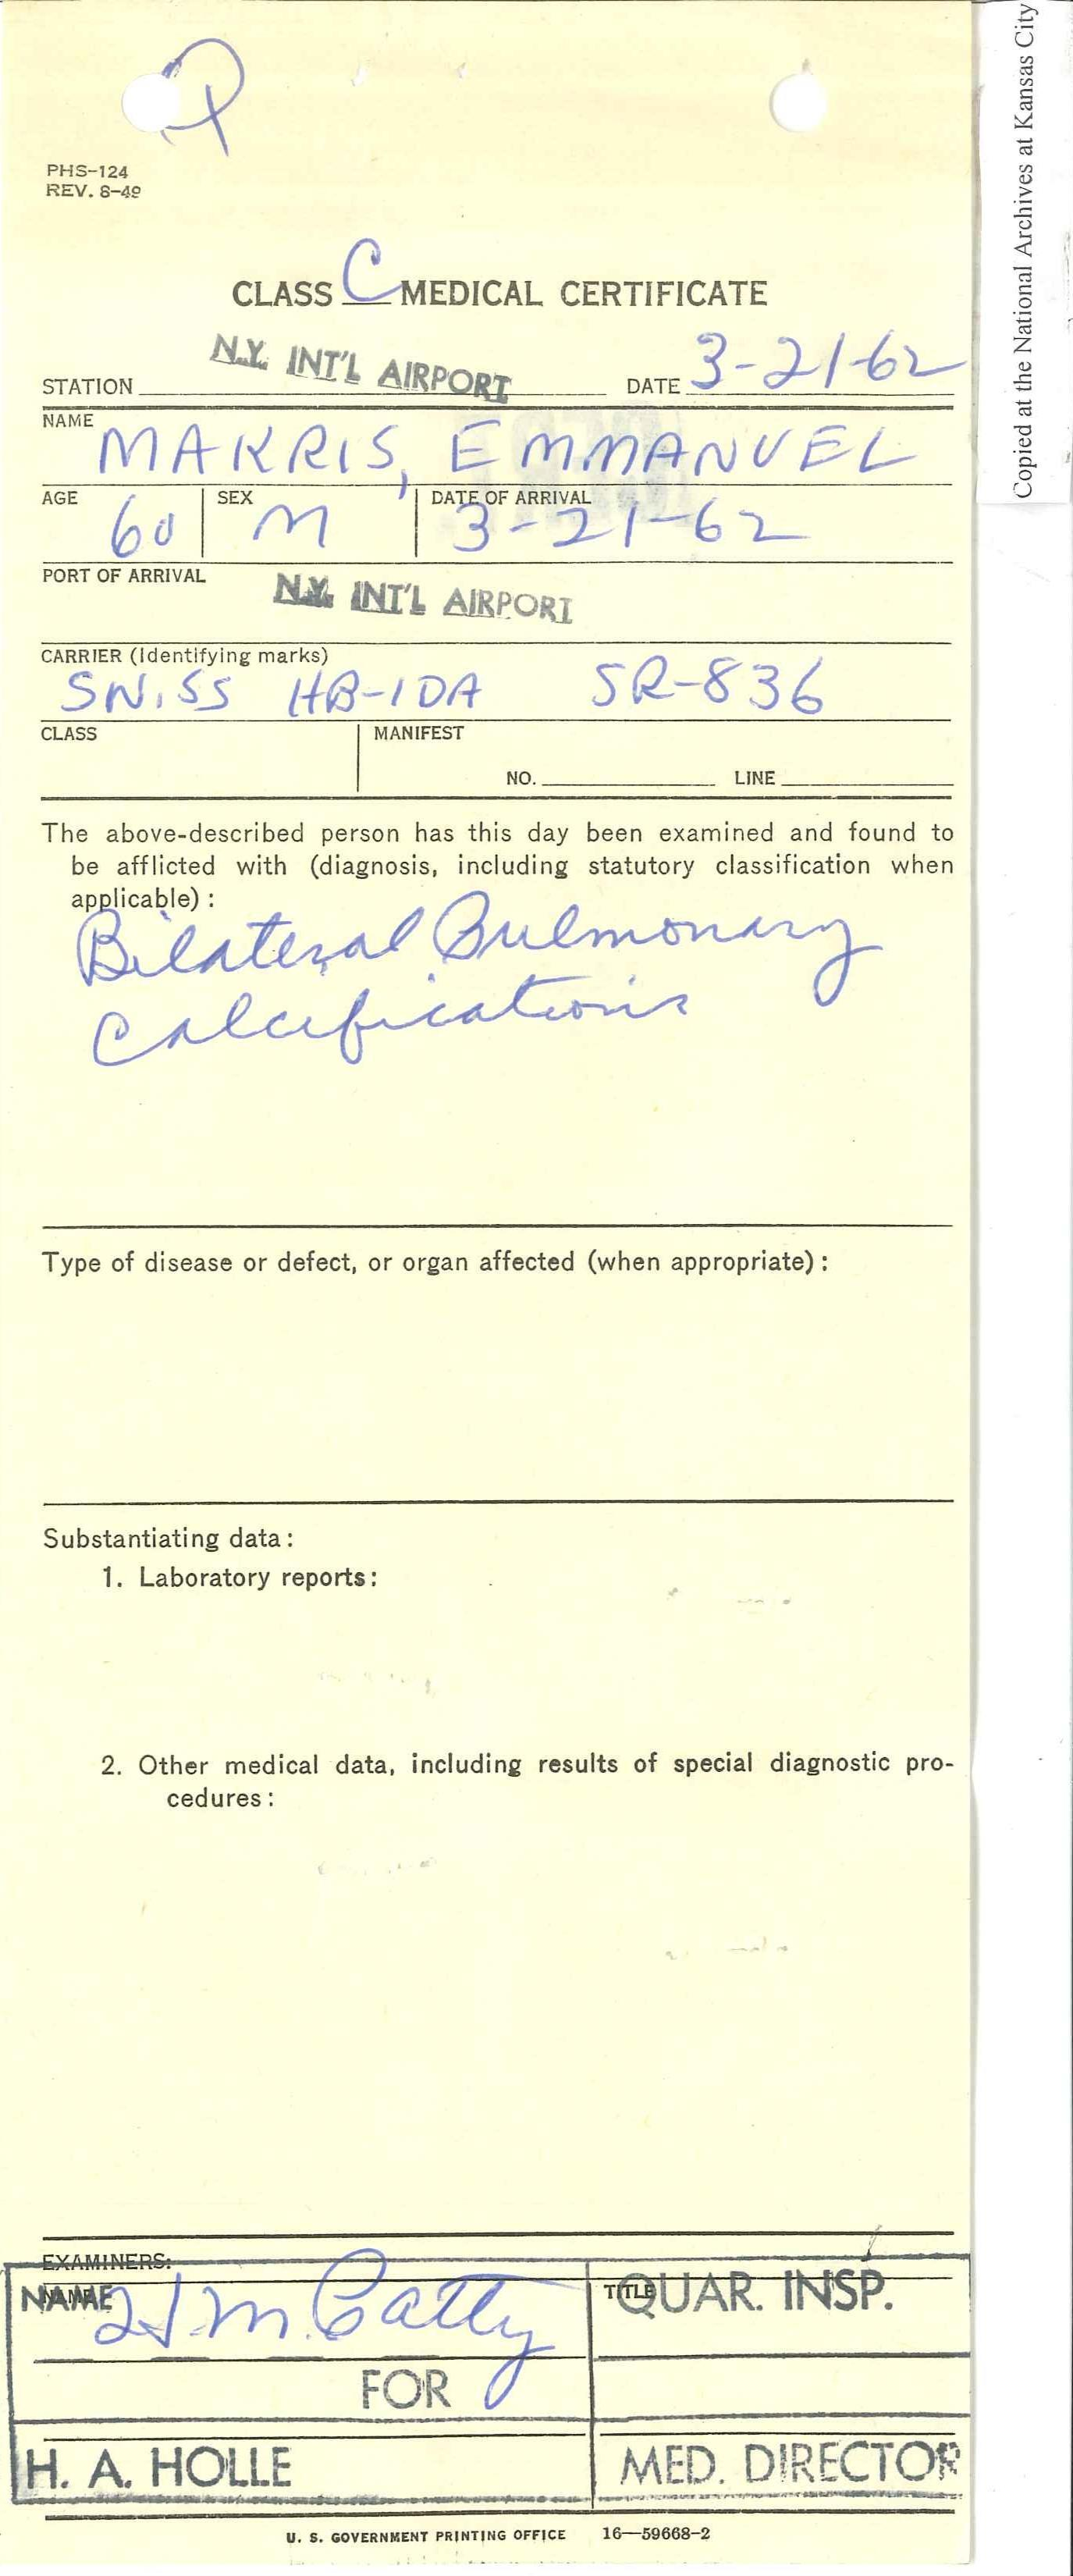 Copied at the National Archives at Kansas City
PHS-124
REV. 8-49
CLASS C MEDICAL CERTIFICATE
STATION N.Y. INT'L AIRPORT DATE 3-21-62
NAME
MAKRIS, EMMANUEL
AGE 60 SEX M DATE OF ARRIVAL 3-21-62
PORT OF ARRIVAL N.Y. INT'L AIRPORT
CARRIER (Identifying marks)
SWISS HB-IDA SR-836
CLASS MANIFEST
NO. LINE
The above-described person has this day been examined and found to
be afflicted with (diagnosis, including statutory classification when
applicable):
Bilateral Pulmonary
Calcifications
Type of disease or defect, or organ affected (when appropriate):
Substantiating data:
1. Laboratory reports:
2. Other medical data, including results of special diagnostic pro-
cedures:
EXAMINERS:
NAME TITLE QUAR. INSP.
FOR
H. A. HOLLE MED. DIRECTOR
U. S. GOVERNMENT PRINTING OFFICE 16—59668-2